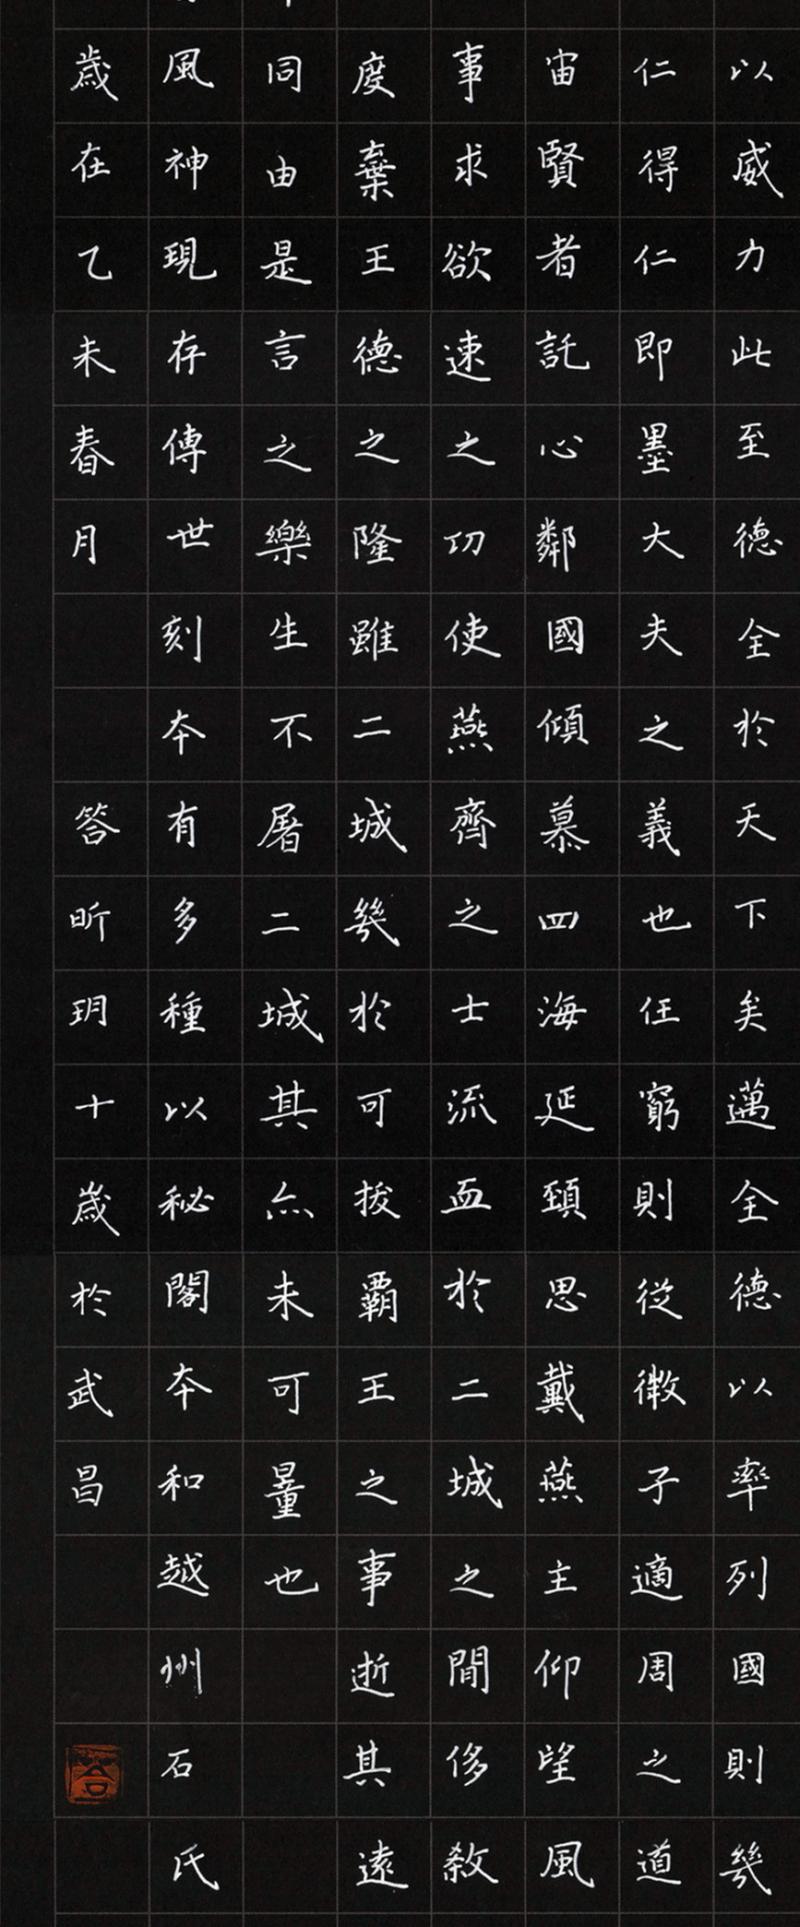 以威力此至德全於天下矣邁全德以率列國則幾
仁得仁即墨大夫之義也任窮則從微子適周之道
宙賢者託心鄰國傾慕四海延頸思戴燕主仰望風
事求欲速之功使燕齊之士流血於二城之間侈敘
度棄王德之隆雖二城幾於可拔霸王之事逝其遠
同由是言之樂生不屠二城其亦未可量也
風神現存傳世刻本有多種以秘閣本和越州石氏
歲在乙未春月 答昕玥十歲於武昌